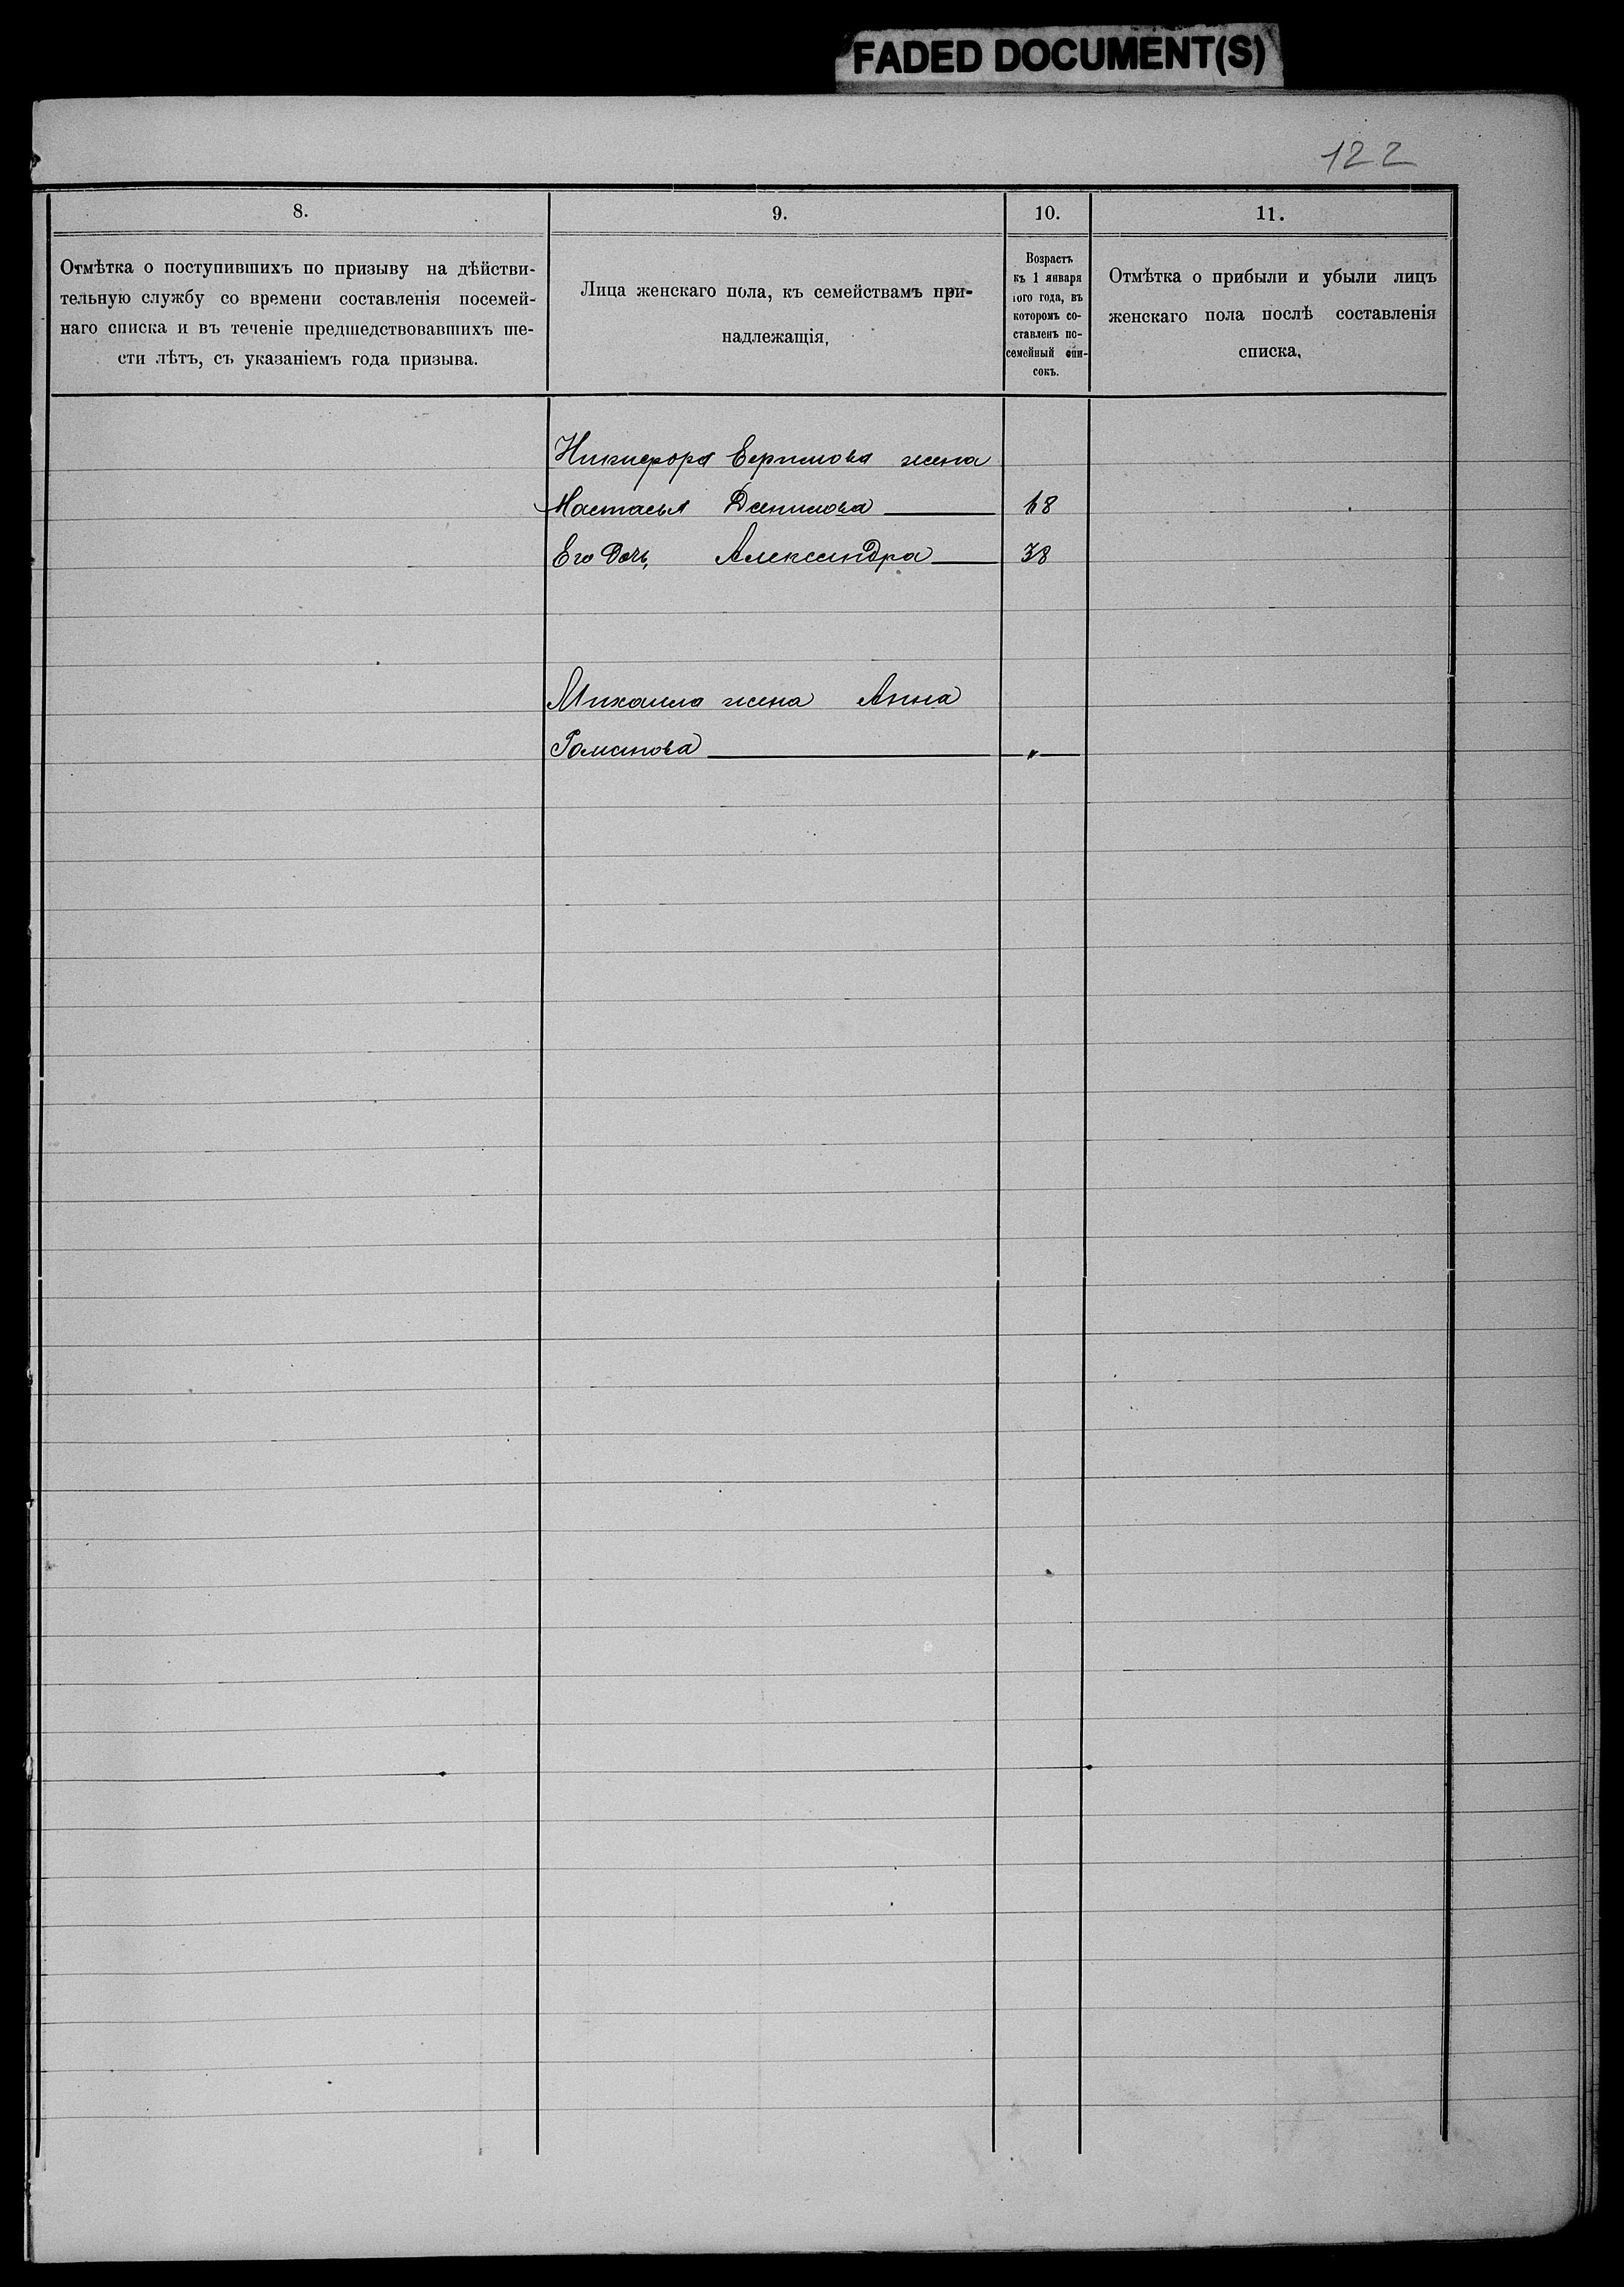 FADED DOCUMENT(S)
122
8.
9.
10.
11.
Отмѣтка о поступившихъ по призыву на дѣйстви-
тельную службу со времени составленія посемей-
наго списка и въ теченіе предшедствовавшихъ ше-
сти лѣтъ, съ указаніемъ года призыва.
Лица женскаго пола, къ семействамъ при-
надлежащія,
Возрастъ
къ 1 января
того года, въ
которомъ со-
ставленъ по-
семейный спи-
сокъ.
Отмѣтка о прибыли и убыли лицъ
женскаго пола послѣ составленія
списка,
Никифора Ефимова жена
Настасья 68
Его дочь, Александра 38
Михаила жена Анна
Романова "